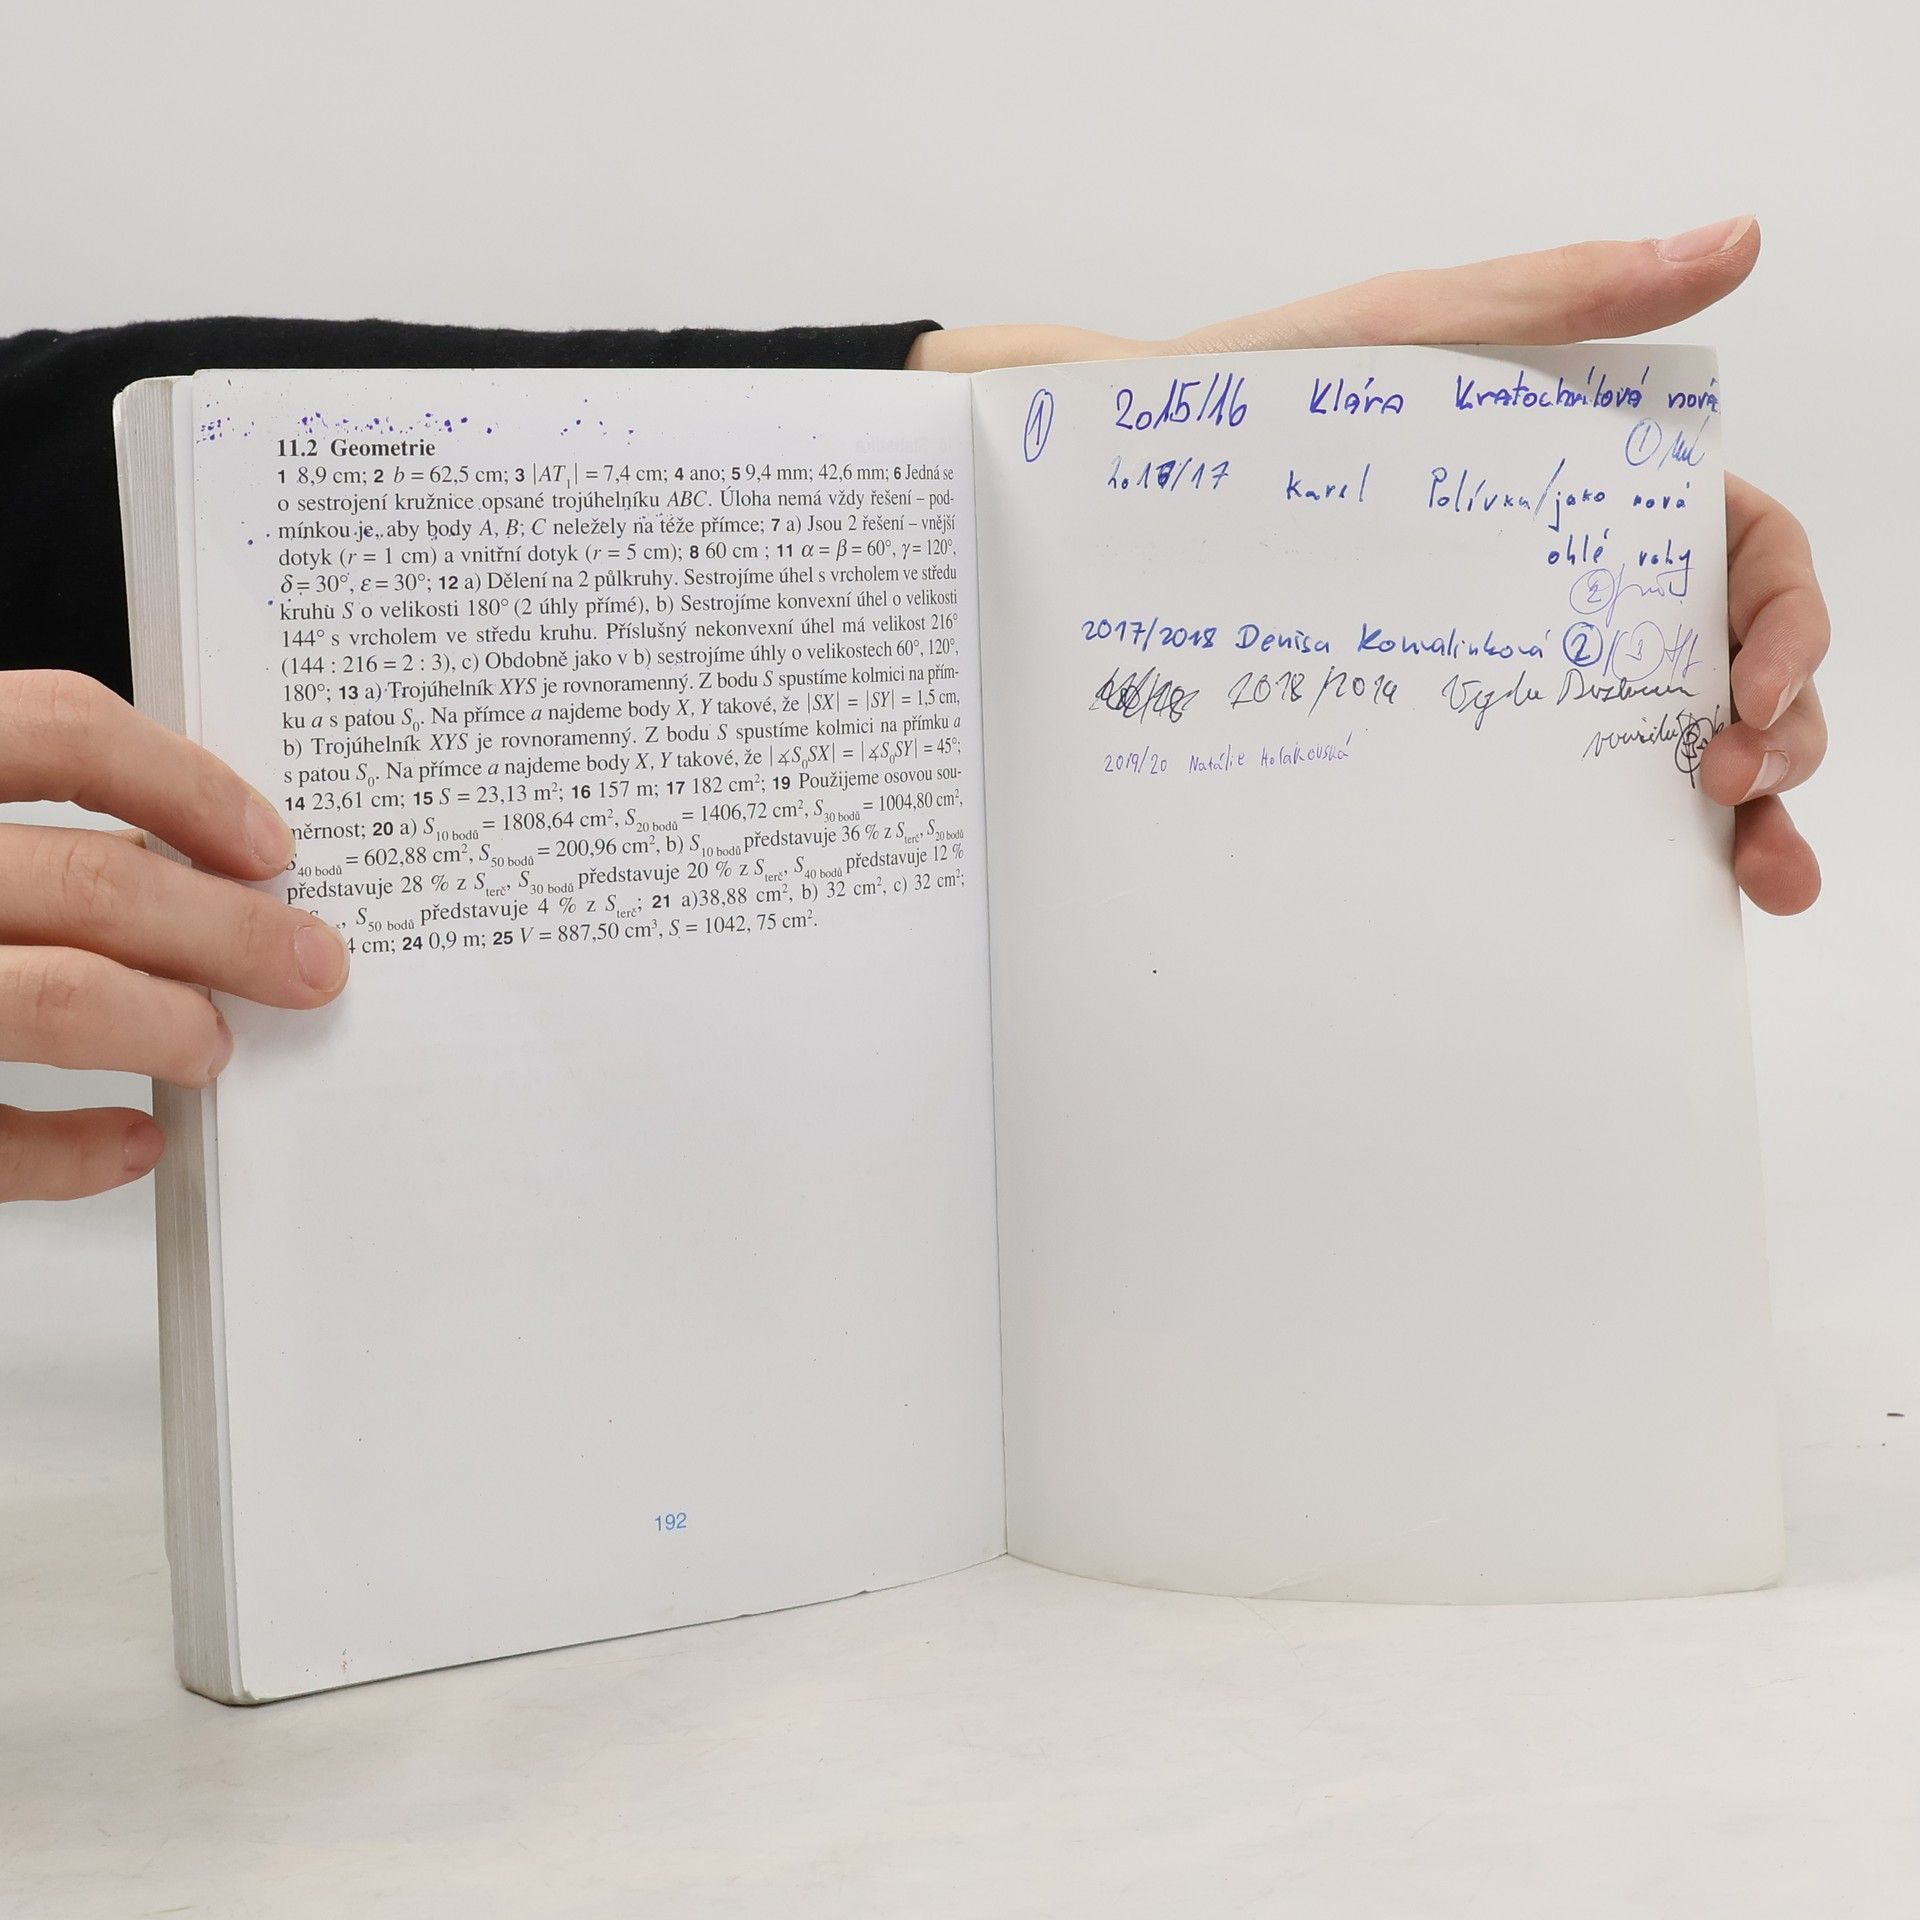 11.2 Geometrie
1 8,9 cm; 2 b = 62,5 cm; 3 |AT₁| = 7,4 cm; 4 ano; 5 9,4 mm; 42,6 mm; 6 Jedná se
o sestrojení kružnice opsané trojúhelníku ABC. Úloha nemá vždy řešení – pod-
mínkou je, aby body A, B; C neležely na téže přímce; 7 a) Jsou 2 řešení – vnější
dotyk (r = 1 cm) a vnitřní dotyk (r = 5 cm); 8 60 cm ; 11 α = β = 60°, γ = 120°,
δ = 30°, ε = 30°; 12 a) Dělení na 2 půlkruhy. Sestrojíme úhel s vrcholem ve středu
kruhu S o velikosti 180° (2 úhly přímé), b) Sestrojíme konvexní úhel o velikosti
144° s vrcholem ve středu kruhu. Příslušný nekonvexní úhel má velikost 216°
(144 : 216 = 2 : 3), c) Obdobně jako v b) sestrojíme úhly o velikostech 60°, 120°,
180°; 13 a) Trojúhelník XYS je rovnoramenný. Z bodu S spustíme kolmici na přím-
ku a s patou S₀. Na přímce a najdeme body X, Y takové, že |SX| = |SY| = 1,5 cm,
b) Trojúhelník XYS je rovnoramenný. Z bodu S spustíme kolmici na přímku a
s patou S₀. Na přímce a najdeme body X, Y takové, že |∡S₀SX| = |∡S₀SY| = 45°;
14 23,61 cm; 15 S = 23,13 m²; 16 157 m; 17 182 cm²; 19 Použijeme osovou sou-
měrnost; 20 a) S10 bodů = 1808,64 cm², S20 bodů = 1406,72 cm², S30 bodů = 1004,80 cm²,
S40 bodů = 602,88 cm², S50 bodů = 200,96 cm², b) S10 bodů představuje 36 % z Sterč, S20 bodů
představuje 28 % z Sterč, S30 bodů představuje 20 % z Sterč, S40 bodů představuje 12 %
S50 bodů představuje 4 % z Sterč; 21 a)38,88 cm², b) 32 cm², c) 32 cm²;
4 cm; 24 0,9 m; 25 V = 887,50 cm³, S = 1042, 75 cm².
192
1 2015/16 Klára Kratochvílová nová
1
2016/17 Karel Polívka/jako nová
ohlé rohy
2
2017/2018 Denisa Komalínková 2/3
2018/2019
2019/20 Natálie Holakovská